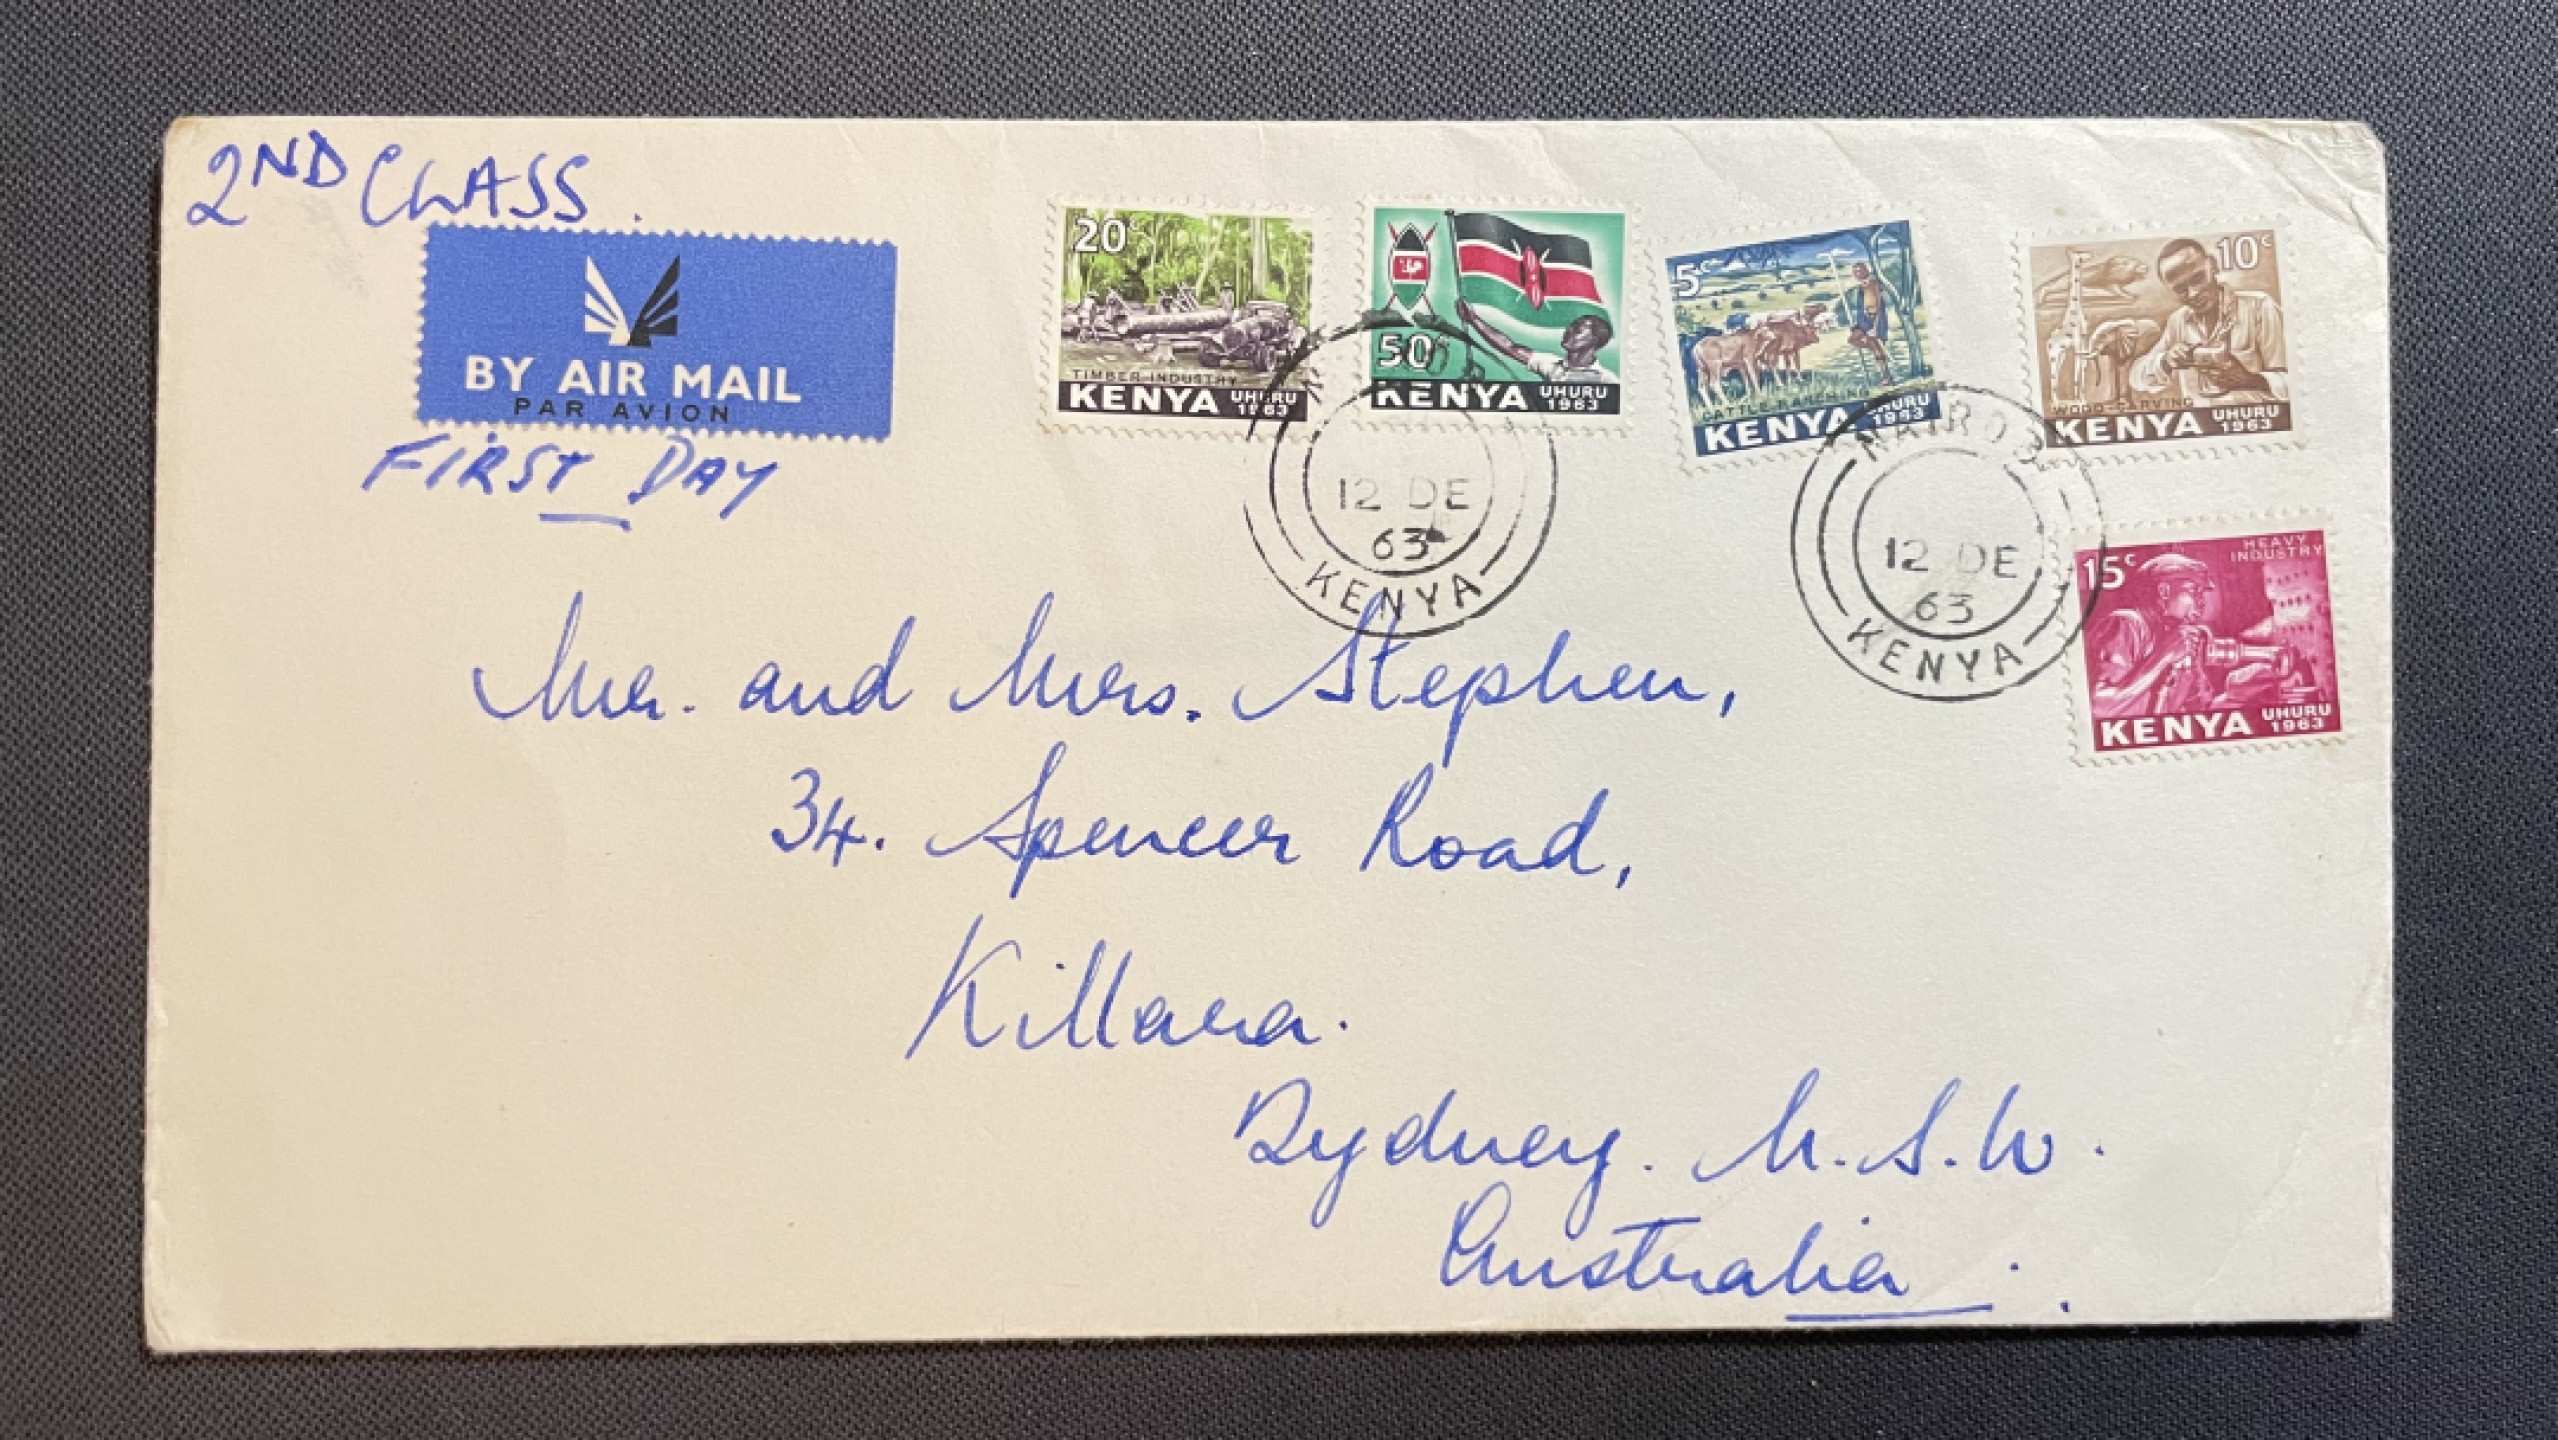 2ND CLASS.
BY AIR MAIL
PAR AVION
FIRST DAY
20c
TIMBER INDUSTRY
KENYA UHURU 1963
50c
KENYA UHURU 1963
5c
CATTLE RANCHING
KENYA UHURU 1963
10c
WOOD-CARVING
KENYA UHURU 1963
15c
HEAVY INDUSTRY
KENYA UHURU 1963
12 DE
63
KENYA
NAIROBI
12 DE
63
KENYA
Mr. and Mrs. Stephen,
34. Spencer Road,
Killara.
Sydney. N.S.W.
Australia.